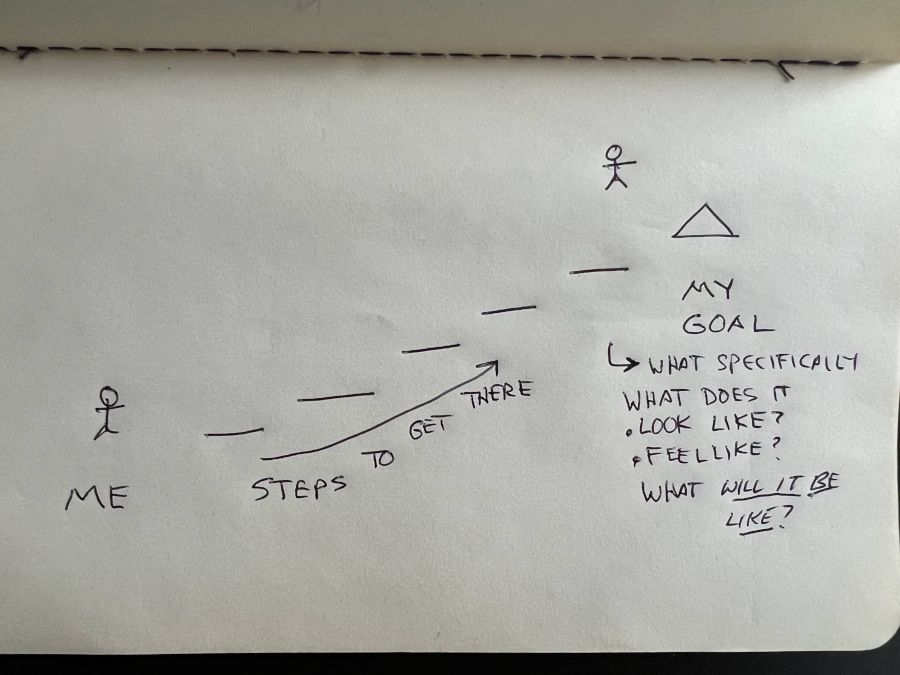 MY
GOAL
WHAT SPECIFICALLY
WHAT DOES IT
• LOOK LIKE?
• FEEL LIKE?
WHAT WILL IT BE
LIKE?
ME
STEPS TO GET THERE